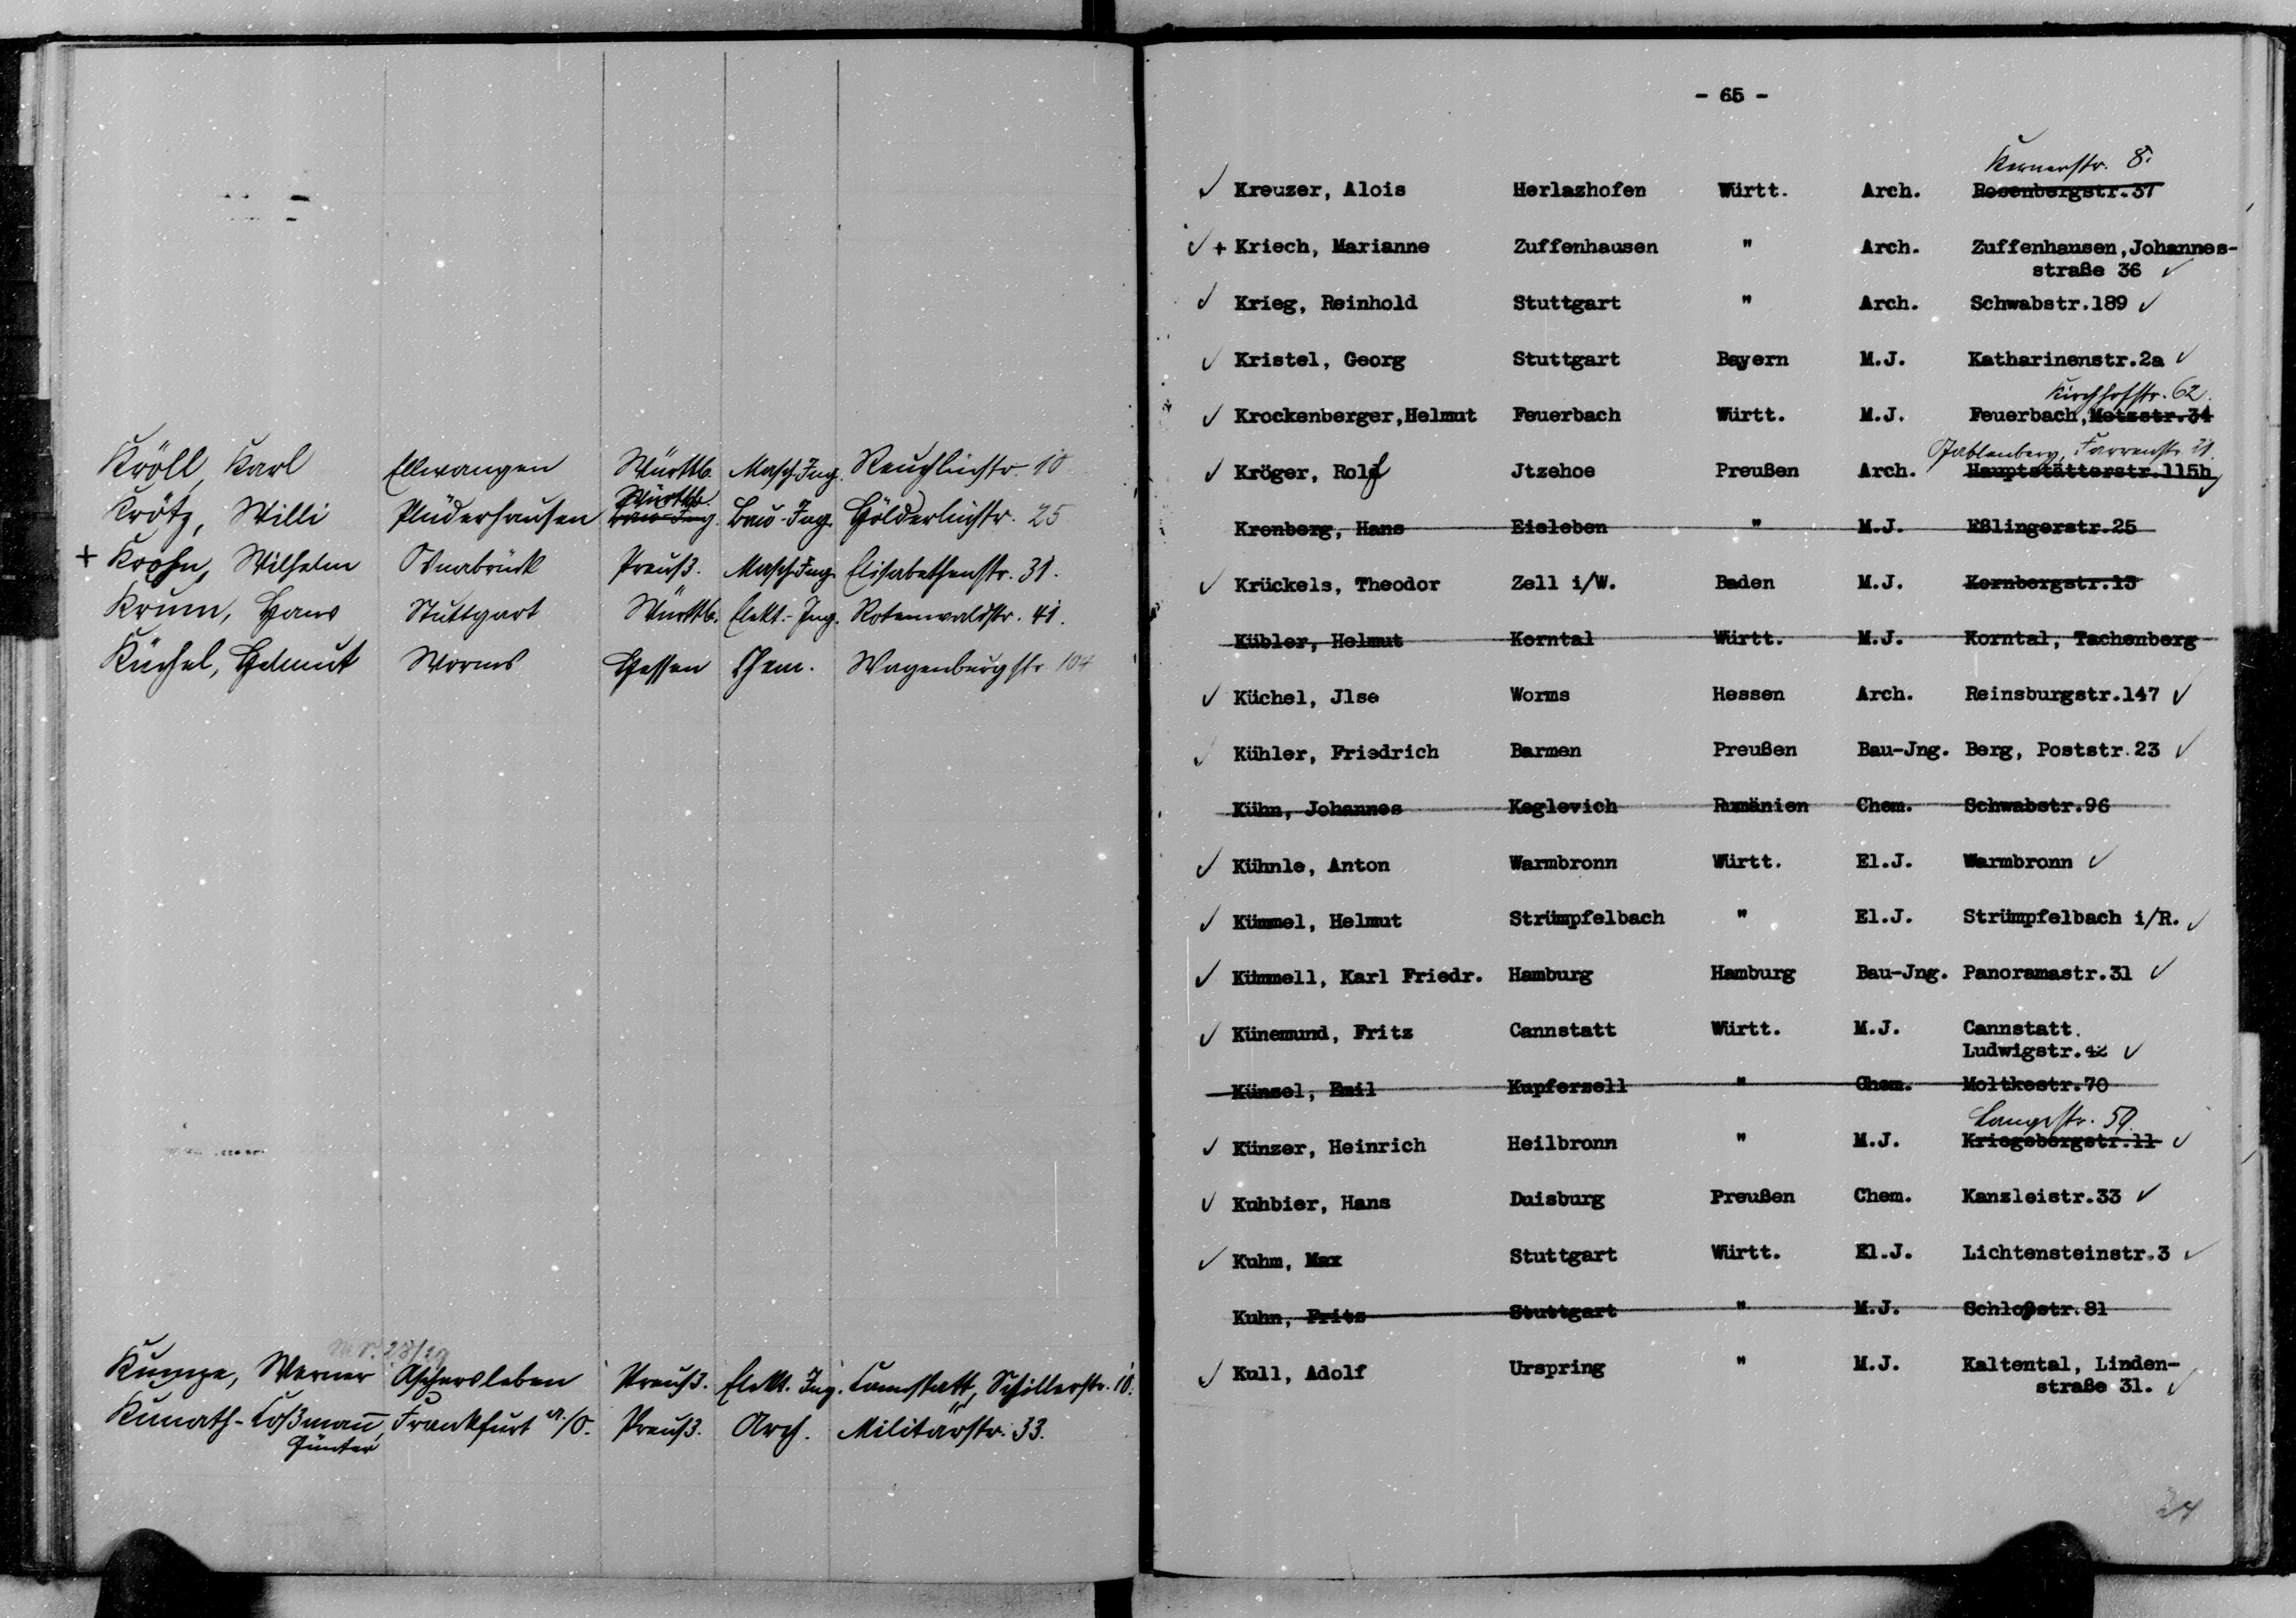 Kröll, Karl Ellwangen Württb. Masch.Ing. Reuchlinstr. 10
Krötz, Willi Plüderhausen Württb. Bau-Ing. Bau-Ing. Hölderlinstr. 25
+ Krohn, Wilhelm Osnabrück Preuß. Masch.Ing. Elisabethenstr. 31.
Krum, Hans Stuttgart Württb. Elekt.-Ing. Rotenwaldstr. 41.
Küchel, Helmut Worms Hessen Chem. Wagenburgstr. 104
28/29
Kumpe, Werner Aschersleben Preuß. Elekt. Ing. Cannstatt, Schillerstr. 10.
Kunath-Loßmann, Frankfurt a./O. Preuß. Arch. Militärstr. 33.
Günter
- 65 -
Kernerstr. 8.
✓ Kreuzer, Alois Herlazhofen Württ. Arch. Rosenbergstr.37
✓ + Kriech, Marianne Zuffenhausen " Arch. Zuffenhausen,Johannes-
straße 36 ✓
✓ Krieg, Reinhold Stuttgart " Arch. Schwabstr.189 ✓
✓ Kristel, Georg Stuttgart Bayern M.J. Katharinenstr.2a ✓
Kirchhofstr. 62.
✓ Krockenberger,Helmut Feuerbach Württ. M.J. Feuerbach,Metzstr.34
Gablenberg, Farrenstr. 21.
✓ Kröger, Rolf Jtzehoe Preußen Arch. Hauptstätterstr.115b
Kronberg, Hans Eisleben " M.J. Eßlingerstr.25
✓ Krückels, Theodor Zell i/W. Baden M.J. Kornbergstr.13
Kübler, Helmut Korntal Württ. M.J. Korntal, Tachenberg
✓ Küchel, Jlse Worms Hessen Arch. Reinsburgstr.147 ✓
✓ Kühler, Friedrich Barmen Preußen Bau-Jng. Berg, Poststr.23 ✓
Kühn, Johannes Keglevich Rumänien Chem. Schwabstr.96
✓ Kühnle, Anton Warmbronn Württ. El.J. Warmbronn ✓
✓ Kümmel, Helmut Strümpfelbach " El.J. Strümpfelbach i/R. ✓
✓ Kümmell, Karl Friedr. Hamburg Hamburg Bau-Jng. Panoramastr.31 ✓
✓ Künemund, Fritz Cannstatt Württ. M.J. Cannstatt.
Ludwigstr.42 ✓
Künzel, Emil Kupferzell " Chem. Moltkestr.70
Langestr. 59.
✓ Künzer, Heinrich Heilbronn " M.J. Kriegsbergstr.11 ✓
✓ Kuhbier, Hans Duisburg Preußen Chem. Kanzleistr.33 ✓
✓ Kuhm, Max Stuttgart Württ. El.J. Lichtensteinstr.3 ✓
Kuhn, Fritz Stuttgart " M.J. Schloßstr.81
✓ Kull, Adolf Urspring " M.J. Kaltental, Linden-
straße 31. ✓
24